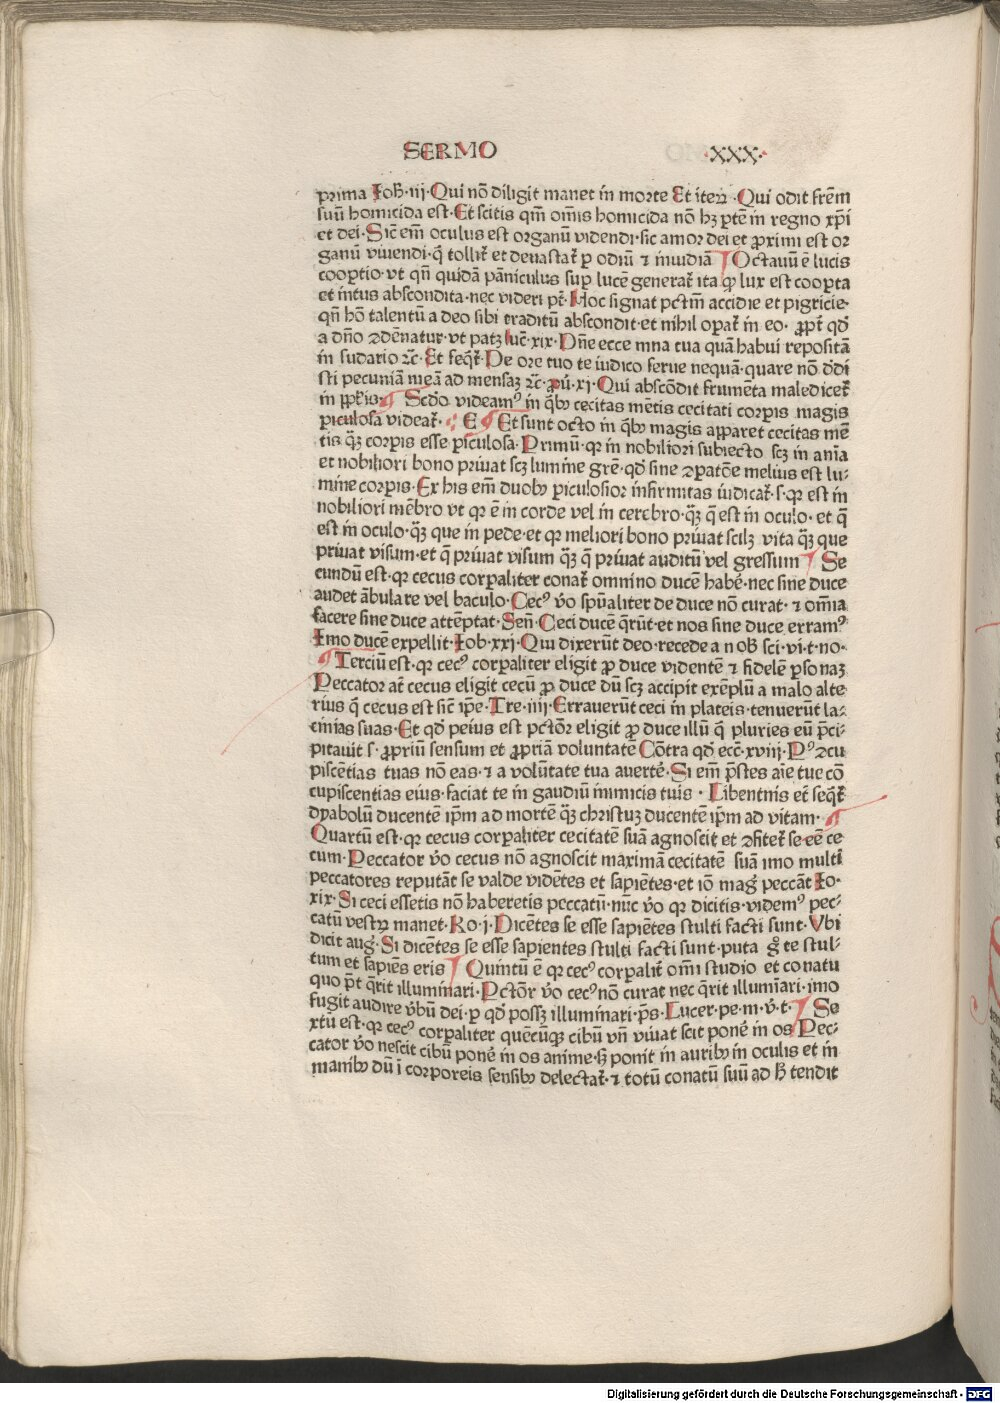 SERMO ·XXX·
prima Joh̄·iij·Qui nō diligit manet in morte Et iteꝝ·Qui odit frēm
suū homicida est·Et scitis qm̄ om̄is homicida nō hꝫ ptē in regno xp̄i
et dei·Sic em̄ oculus est organū videndi·sic amor dei et ꝓximi est or
ganū viuendi·q̄ tollit̄ et deuastat̄ p odiū ⁊ inuidiā Octauū ē lucis
coopertio·vt qn̄ quidā pāniculus sup lucē generat̄ ita ꝙ lux est coopta
et intus abscondita·nec videri pt̄·Hoc signat pctm̄ accidie et pigricie·
qn̄ hō talentū a deo sibi traditū abscondit·et nihil opat̄ in eo·ꝓpt̄ qd̄
a dn̄o ꝯdēnatur·vt patꝫ luc̄·xix·Dn̄e ecce mna tua quā habui repositā
in sudario ⁊c̄·Et seqt̄·De ore tuo te iudico serue nequā·quare nō d̄di
sti pecuniā meā ad mensaꝫ ⁊c̄·ꝓu̇·xi·Qui abscōdit frumēta maledicet̄
in pplis Scd̄o videamꝰ in qbꝫ cecitas mētis cecitati corpis magis
piculosa videat̄· E Et sunt octo in qbꝫ magis apparet cecitas mē
tis qꝫ̄ corpis esse piculosa·Primū·qꝛ in nobiliori subiecto scꝫ in anīa
et nobiliori bono priuat scꝫ lumine grē·qd̄ sine ꝯpatōe melius est lu-
mine corpis·Ex his em̄ duobꝫ piculosior infirmitas iudicat̄·s·qꝛ est in
nobiliori mēbro vt qꝛ ē in corde vel in cerebro·qꝫ̄ q̄ est in oculo·et q̄
est in oculo·qꝫ̄ que in pede·et qꝛ meliori bono priuat scilꝫ vita qꝫ̄ que
priuat visum·et q̄ priuat visum qꝫ̄ q̄ priuat auditū vel gressum Se
cundū est·qꝛ cecus corpaliter conat̄ omnino ducē habe·nec sine duce
audet ābulare vel baculo·Cecꝰ v̄o spūaliter de duce nō curat·⁊ om̄ia
facere sine duce attēptat·Sen̄·Ceci ducē q̄rūt·et nos sine duce erramꝰ
Imo ducē expellit·Iob·xxi·Qui dixerūt deo·recede a nob̄ sci·vi·t·no·
Terciū est·qꝛ cecꝰ corpaliter eligit ꝓ duce videntē ⁊ fidelē psonaꝫ
Peccator at̄ cecus eligit cecū ꝓ duce dū scꝫ accipit exēplū a malo alte
rius q̄ cecus est sic̄ ip̄e·Tre·iiij·Errauerūt ceci in plateis·tenuerūt la-
cinias suas·Et qd̄ peius est pctōr eligit ꝓ duce illū q̄ pluries eū p̄ci-
pitauit s·ꝓpriū sensum et ꝓpriā voluntatē Cōtra qd̄ ecc̄·xviij·Pꝰ ꝯcu
piscētias tuas nō eas·⁊ a volūtate tua auerte·Si em̄ p̄stes aīe tue cō
cupiscentias eius·faciat te in gaudiū inimicis tuis·Libentius et̄ seqt̄
dyabolū ducentē ip̄m ad mortē qꝫ̄ christuꝫ ducentē ip̄m ad vitam·
Quartū est·qꝛ cecus corpaliter cecitatē suā agnoscit et ꝯfitet̄ se eē ce
cum·Peccator v̄o cecus nō agnoscit maximā cecitatē suā imo multi
peccatores reputāt se valde vidētes et sapiētes·et iō mag̉ peccāt Io·
xix·Si ceci essetis nō haberetis peccatū·nūc v̄o qꝛ dicitis·videmꝰ pec-
catū vestꝝ manet·Ro·i·Dicētes se esse sapiētes stulti facti sunt·Vbi
dicit aug̉·Si dicētes se esse sapientes stulti facti sunt·puta g̊ te stul-
tum et sapiēs eris Quintū ē qꝛ cecꝰ corpalit̄ om̄i studio et conatu
quo pt̄ q̄rit illuminari·Pctōr v̄o cecꝰ nō curat nec q̄rit illumīari·imo
fugit audire v̄bū dei·p qd̄ possꝫ illuminari·p̄s·Lucer·pe·m·v̄·t· Se
xtū est·qꝛ cecꝰ corpaliter quēcūqꝫ cibū vn̄ viuat scit pone in os Pec-
cator v̄o nescit cibū pone in os anime·sꝫ ponit in auribꝫ in oculis et in
manibꝫ dū ī corporeis sensibꝫ delectat̄·⁊ totū conatū suū ad h̄ tendit
Digitalisierung gefördert durch die Deutsche Forschungsgemeinschaft - DFG